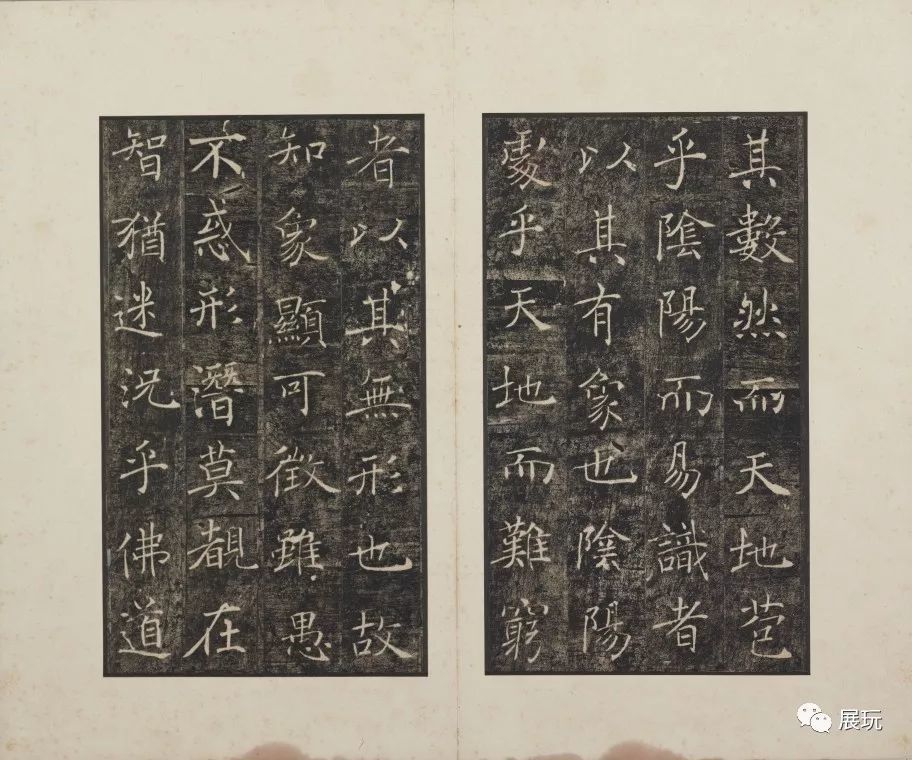 其數然而天地苞
乎陰陽而易識者
以其有象也陰陽
處乎天地而難窮
者以其無形也故
知象顯可徵雖愚
不惑形潛莫覩在
智猶迷況乎佛道
展玩